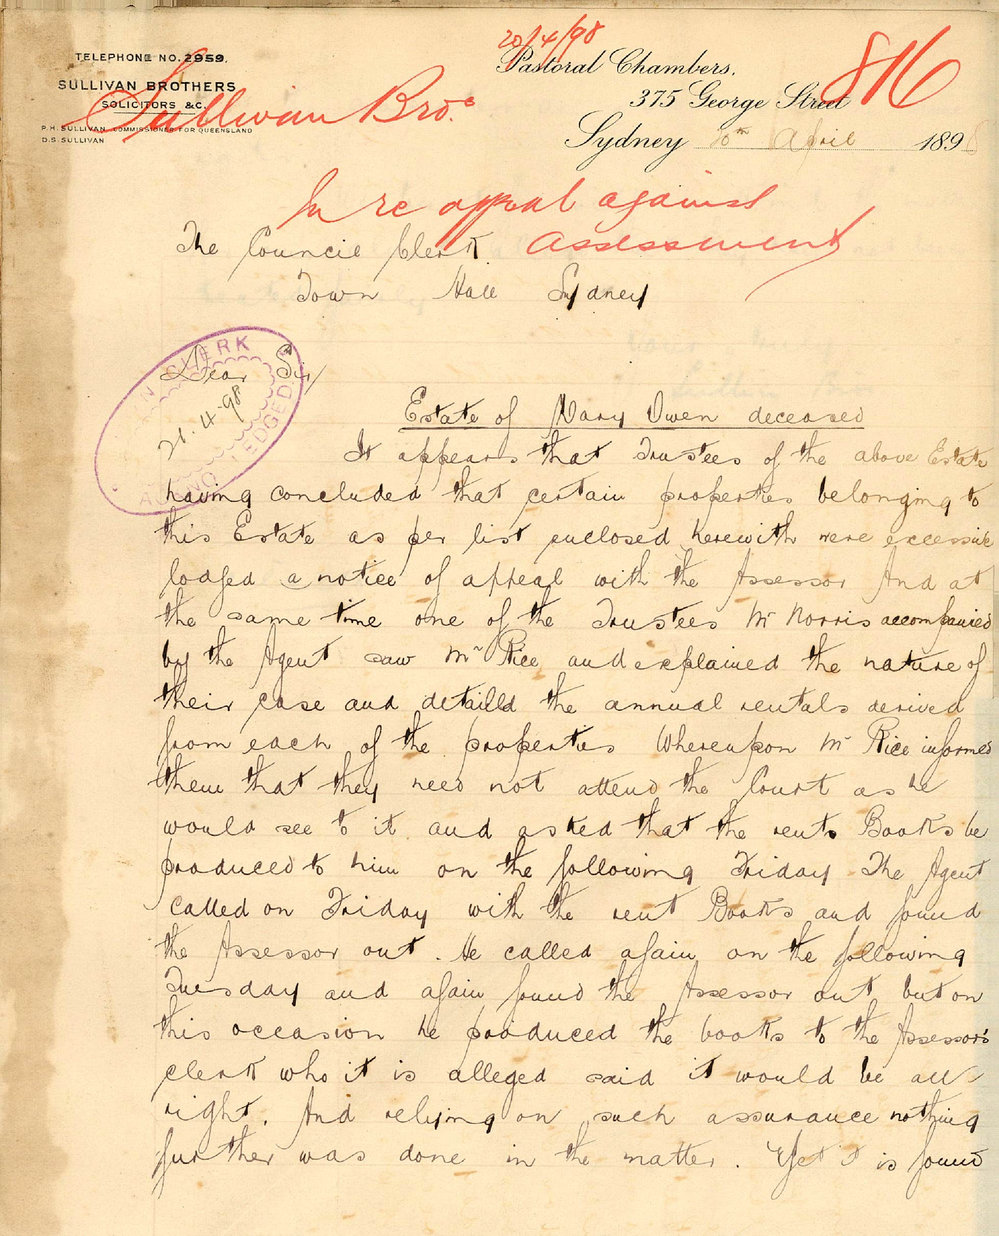 20/4/98
TELEPHONE NO. 2959.
SULLIVAN BROTHERS
SOLICITORS &C.
P.H. SULLIVAN, COMMISSIONER FOR QUEENSLAND
D.S. SULLIVAN
Sullivan Bros.
Pastoral Chambers,
375 George Street
816
Sydney 20th April 1898
In re appeal against
assessment
The Council Clerk
Town Hall Sydney
CLERK
21.4.98
Dear Sir/
Estate of Mary Owen deceased
It appears that Trustees of the above Estate
having concluded that certain properties belonging to
this Estate as per list enclosed herewith were excessive
lodged a notice of appeal with the Assessor And at
the same time one of the Trustees Mr Norris accompanied
by the Agent saw Mr Rice and explained the nature of
their case and detailld the annual rentals derived
from each of the properties Whereupon Mr Rice informed
them that they need not attend the Court as he
would see to it and asked that the rents Books be
produced to him on the following Friday The Agent
called on Friday with the rent Books and found
the Assessor out. He called again on the following
Tuesday and again found the Assessor out but on
this occasion he produced the books to the Assessor's
clerk who it is alleged said it would be all
right. And relying on such assurance nothing
further was done in the matter. Yet it is found